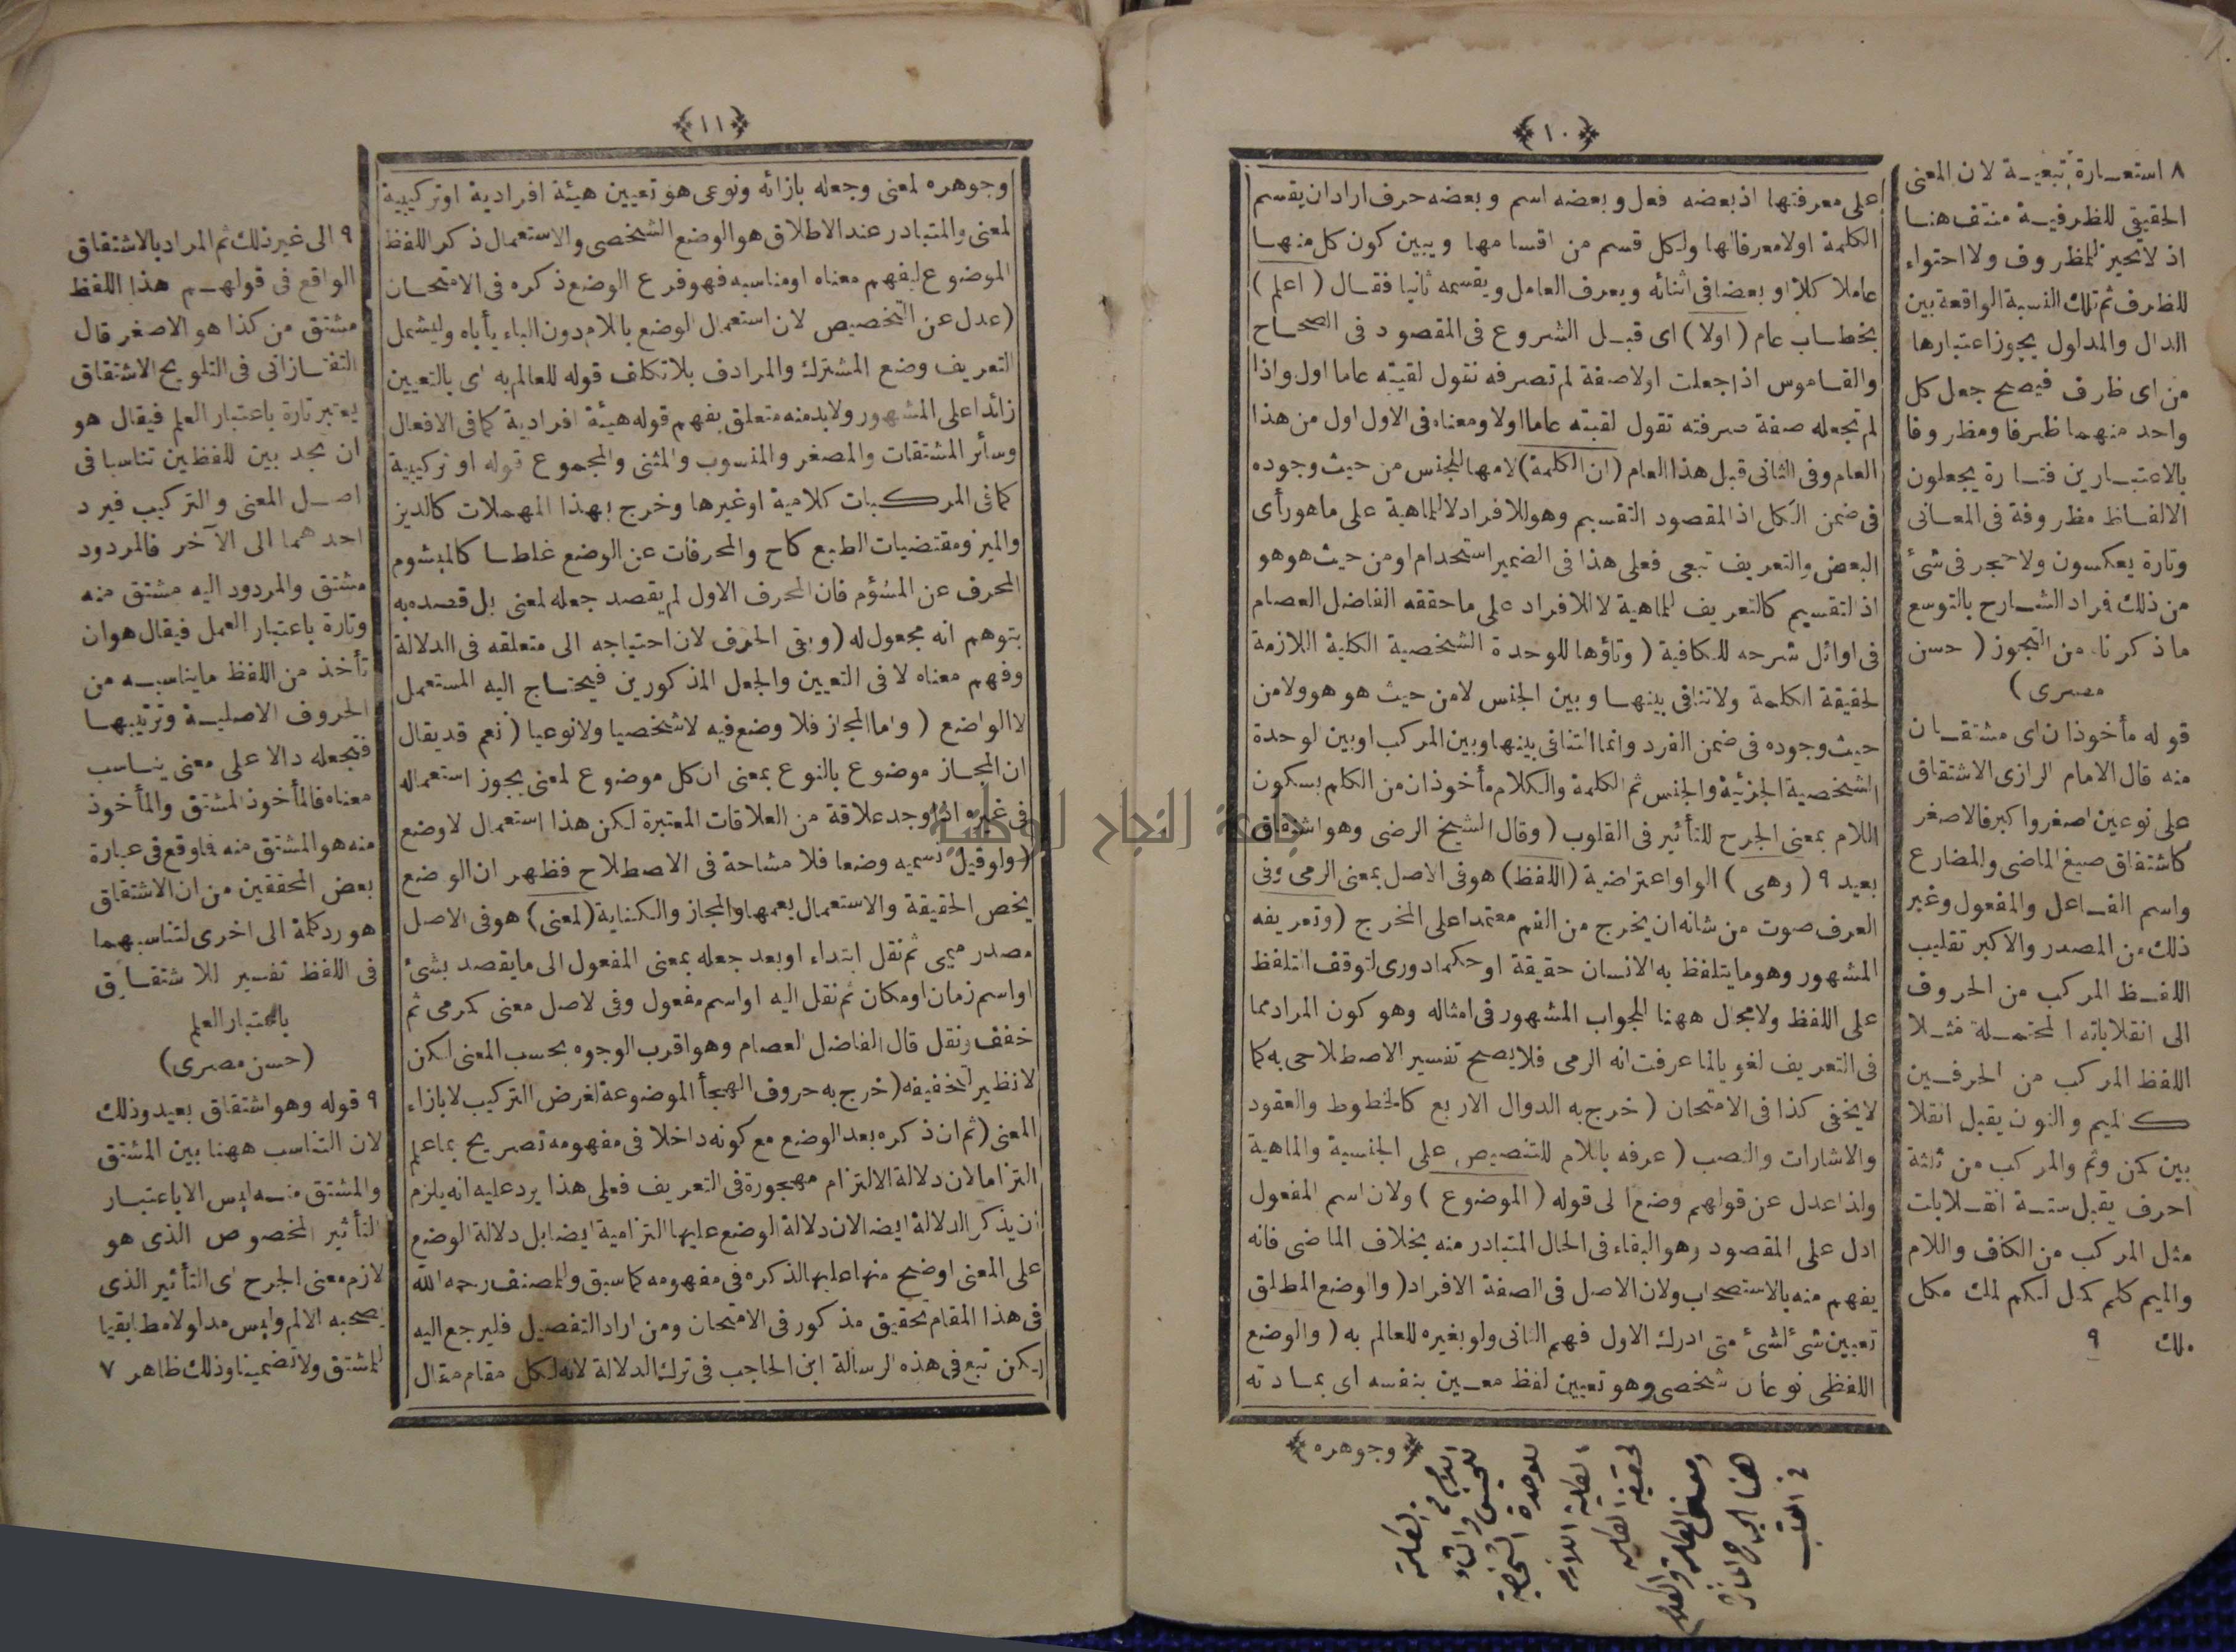 ﴿١٠﴾
على معرفتها اذ بعضه فعل و بعضه اسم و بعضه حرف اراد ان يقسم
الكلمة اولا معرفا لها ولكل قسم من اقسامها ويبين كون كل منها
عاملا كلا او بعضا فى اثنائه ويعرف العامل ويقسمه ثانيا فقال ( اعلم )
بخطاب عام ( اولا ) اى قبل الشروع فى المقصود فى الصحاح
والقاموس اذا جعلت اولا صفة لم تصرفه تقول لقيته عاما اول واذا
لم تجعله صفة صرفته تقول لقيته عاما اولا ومعناه فى الاول اول من هذا
العام وفى الثانى قبل هذا العام ( ان الكلمة ) لامها للجنس من حيث وجوده
فى ضمن الكل اذ المقصود التقسيم وهو للافراد لا للماهية على ما هو رأى
البعض والتعريف تبعى فعلى هذا فى الضمير استخدام او من حيث هو هو
اذ التقسيم كالتعريف للماهية لا للافراد على ما حققه الفاضل العصام
فى اوائل شرحه للكافية ( وتاؤها للوحدة الشخصية الكلية اللازمة
لحقيقة الكلمة ولا تنافى بينها وبين الجنس لا من حيث هو هو ولا من
حيث وجوده فى ضمن الفرد وانما التنافى بينها وبين المركب او بين الوحدة
الشخصية الجزئية والجنس ثم الكلمة والكلام مأخوذان من الكلم بسكون
اللام بمعنى الجرح للتأثير فى القلوب ( وقال الشيخ الرضى وهو اشتقاق
بعيد ٩ ( وهى ) الواو اعتراضية ( اللفظ ) هو فى الاصل بمعنى الرمى وفى
العرف صوت من شانه ان يخرج من الفم معتمدا على المخرج ( وتعريفه
المشهور وهو ما يتلفظ به الانسان حقيقة او حكما دورى لتوقف التلفظ
على اللفظ ولا مجال ههنا للجواب المشهور فى امثاله وهو كون المراد مما
فى التعريف لغويا لما عرفت انه الرمى فلا يصح تفسير الاصطلاحى به كما
لا يخفى كذا فى الامتحان ( خرج به الدوال الاربع كالخطوط والعقود
والاشارات والنصب ( عرفه باللام للتنصيص على الجنسية والماهية
ولذا عدل عن قولهم وضع الى قوله ( الموضوع ) ولان اسم المفعول
ادل على المقصود وهو البقاء فى الحال المتبادر منه بخلاف الماضى فانه
يفهم منه بالاستصحاب ولان الاصل فى الصفة الافراد ( والوضع المطلق
تعيين شئ لشئ متى ادرك الاول فهم الثانى ولو بغيره للعالم به ( والوضع
اللفظى نوعان شخصى وهو تعيين لفظ معين بنفسه اى بمادته
﴿ وجوهره ﴾
٨ استعارة تبعية لان المعنى
الحقيقى للظرفية منتف هنا
اذ لا تحيز للمظروف ولا احتواء
للظرف ثم تلك النسبة الواقعة بين
الدال والمدلول يجوز اعتبارها
من اى ظرف فيصح جعل كل
واحد منهما ظرفا ومظروفا
بالاعتبارين فتارة يجعلون
الالفاظ مظروفة فى المعانى
وتارة يعكسون ولا حجر فى شئ
من ذلك فراد الشارح بالتوسع
ما ذكرنا من التجوز ( حسن
مصرى )
قوله مأخوذان اى مشتقان
منه قال الامام الرازى الاشتقاق
على نوعين اصغر واكبر فالاصغر
كاشتقاق صيغ الماضى والمضارع
واسم الفاعل والمفعول وغير
ذلك من المصدر والاكبر تقليب
اللفظ المركب من الحروف
الى انقلاباته المحتملة مثلا
اللفظ المركب من الحرفين
كالميم والنون يقبل انقلا
بين كمن ونم والمركب من ثلثة
احرف يقبل ستة انقلابات
مثل المركب من الكاف واللام
والميم كلم كمل لكم لمك مكل
ملك ٩
الكلمة
اللام فى
للجنس والتاء
للوحدة الشخصية
الكلية اللازمة
لحقيقة الكلمة
ومعنى الكلمة والكلام
هنا
فى القلب
﴿١١﴾
وجوهره لمعنى وجعله بازائه ونوعى هو تعيين هيئة افرادية او تركيبية
لمعنى والمتبادر عند الاطلاق هو الوضع الشخصى والاستعمال ذكر اللفظ
الموضوع ليفهم معناه او مناسبه فهو فرع الوضع ذكره فى الامتحان
( عدل عن التخصيص لان استعمال الوضع باللام دون الباء يأباه وليشمل
التعريف وضع المشترك والمرادف بلا تكلف قوله للعالم به اى بالتعيين
زائدا على المشهور ولا بد منه متعلق بفهم قوله هيئة افرادية كما فى الافعال
وسائر المشتقات والمصغر والمنسوب والمثنى والمجموع قوله او تركيبية
كما فى المركبات كلامية او غيرها وخرج بهذا المهملات كالديز
والميز ومقتضيات الطبع كاح والمحرفات عن الوضع غلطا كالميشوم
المحرف عن المشؤم فان المحرف الاول لم يقصد جعله لمعنى بل قصده به
بتوهم انه مجعول له ( وبقى الحرف لان احتياجه الى متعلقه فى الدلالة
وفهم معناه لا فى التعيين والجعل المذكورين فيحتاج اليه المستعمل
لا الواضع ( واما المجاز فلا وضع فيه لا شخصيا ولا نوعيا ( نعم قد يقال
ان المجاز موضوع بالنوع بمعنى ان كل موضوع لمعنى يجوز استعماله
فى غيره اذا وجد علاقة من العلاقات المعتبرة لكن هذا استعمال لا وضع
( ولو قيل نسميه وضعا فلا مشاحة فى الاصطلاح فظهر ان الوضع
يخص الحقيقة والاستعمال يعمها والمجاز والكناية ( لمعنى ) هو فى الاصل
مصدر ميمى ثم نقل ابتداء او بعد جعله بمعنى المفعول الى ما يقصد بشئ
او اسم زمان او مكان ثم نقل اليه او اسم مفعول وفى لاصل معنى كمرمى ثم
خفف ونقل قال الفاضل العصام وهو اقرب الوجوه بحسب المعنى لكن
لا نظير لتخفيفه ( خرج به حروف الهجأ الموضوعة لغرض التركيب لا بازاء
المعنى ( ثم ان ذكره بعد الوضع مع كونه داخلا فى مفهومه تصريح بما علم
التزاما لان دلالة الالتزام مهجورة فى التعريف فعلى هذا يرد عليه انه يلزم
ان يذكر الدلالة ايضا لان دلالة الوضع عليها التزامية ايضا بل دلالة الوضع
على المعنى اوضح منها عليها لذكره فى مفهومه كما سبق والمصنف رحمه الله
فى هذا المقام تحقيق مذكور فى الامتحان ومن اراد التفصيل فليرجع اليه
لكن تبع فى هذه الرسالة ابن الحاجب فى ترك الدلالة لانه لكل مقام مقال
٩ الى غير ذلك ثم المراد بالاشتقاق
الواقع فى قولهم هذا اللفظ
مشتق من كذا هو الاصغر قال
التفتازانى فى التلويح الاشتقاق
يعتبر تارة باعتبار العلم فيقال هو
ان تجد بين اللفظين تناسبا فى
اصل المعنى والتركيب فيرد
احدهما الى الآخر فالمردود
مشتق والمردود اليه مشتق منه
وتارة باعتبار العمل فيقال هو ان
تأخذ من اللفظ ما يناسبه من
الحروف الاصلية وترتيبها
فتجعله دالا على معنى يناسب
معناه فالمأخوذ المشتق والمأخوذ
منه هو المشتق منه فما وقع فى عبارة
بعض المحققين من ان الاشتقاق
هو رد كلمة الى اخرى لتناسبهما
فى اللفظ تفسير للاشتقاق
باعتبار العلم
( حسن مصرى )
٩ قوله وهو اشتقاق بعيد وذلك
لان التناسب ههنا بين المشتق
والمشتق منه ليس الا باعتبار
التأثير المخصوص الذى هو
لازم معنى الجرح اى التأثير الذى
يصحبه الالم وليس مدلولا مطابقيا
للمشتق ولا تضمينا وذلك ظاهر ٧
جامعة النجاح الوطنية